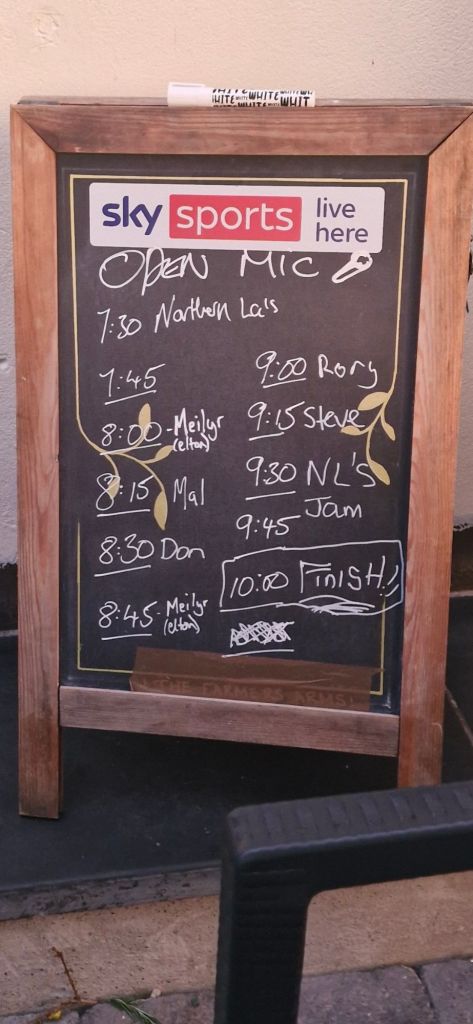 WHITE WHITE WHIT
sky sports live here
OPEN MIC
7:30 Northern La's
7:45
8:00 - Meilyr (elton)
8:15 Mal
8:30 Don
8:45 - Meilyr (elton)
9:00 Rory
9:15 Steve
9:30 NL'S
9:45 Jam
10:00 FINISH!!
THE FARMERS ARMS!